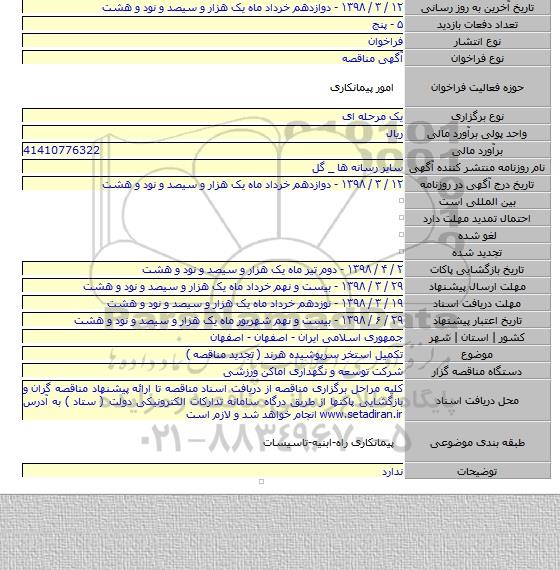 تاریخ آخرین به روز رسانی ۱۲ / ۳ / ۱۳۹۸ - دوازدهم خرداد ماه یک هزار و سیصد و نود و هشت
تعداد دفعات بازدید ۵ - پنج
نوع انتشار فراخوان
نوع فراخوان آگهی مناقصه
حوزه فعالیت فراخوان امور پیمانکاری
نوع برگزاری یک مرحله ای
واحد پولی برآورد مالی ریال
برآورد مالی 41410776322
نام روزنامه منتشر کننده آگهی سایر رسانه ها _ گل
تاریخ درج آگهی در روزنامه ۱۲ / ۳ / ۱۳۹۸ - دوازدهم خرداد ماه یک هزار و سیصد و نود و هشت
بین المللی است
احتمال تمدید مهلت دارد
لغو شده
تجدید شده
تاریخ بازگشایی پاکات ۲ / ۴ / ۱۳۹۸ - دوم تیر ماه یک هزار و سیصد و نود و هشت
مهلت ارسال پیشنهاد ۲۹ / ۳ / ۱۳۹۸ - بیست و نهم خرداد ماه یک هزار و سیصد و نود و هشت
مهلت دریافت اسناد ۱۹ / ۳ / ۱۳۹۸ - نوزدهم خرداد ماه یک هزار و سیصد و نود و هشت
تاریخ اعتبار پیشنهاد ۲۹ / ۶ / ۱۳۹۸ - بیست و نهم شهریور ماه یک هزار و سیصد و نود و هشت
کشور | استان | شهر جمهوری اسلامی ایران - اصفهان - اصفهان
موضوع تکمیل استخر سرپوشیده هرند ( تجدید مناقصه )
دستگاه مناقصه گزار شرکت توسعه و نگهداری اماکن ورزشی
محل دریافت اسناد کلیه مراحل برگزاری مناقصه از دریافت اسناد مناقصه تا ارائه پیشنهاد مناقصه گران و
بازگشایی پاکتها از طریق درگاه سامانه تدارکات الکترونیکی دولت ( ستاد ) به آدرس
www.setadiran.ir انجام خواهد شد و لازم است
طبقه بندی موضوعی پیمانکاری راه-ابنیه-تاسیسات
توضیحات ندارد
۰۲۱-۸۸۳۴۹۶۷۰-۵